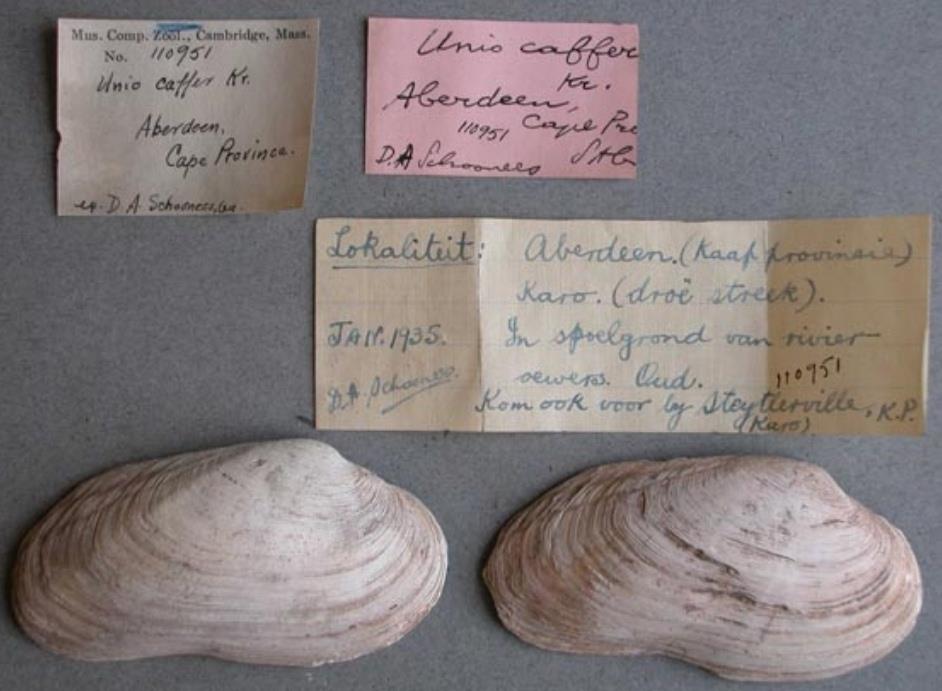 Mus. Comp. Zool., Cambridge, Mass.
No. 110951
Unio caffer Kr.
Aberdeen,
Cape Province.
D. A. Schoonees
Unio caffer
Kr.
Aberdeen,
110951 Cape Pro
D.A Schoonees
Lokaliteit: Aberdeen. (Kaap provinsie)
Karo. (droë streek).
JAN. 1935. In spoelgrond van rivier-
oewers. Oud. 110951
D.A. Schoonees.
Kom ook voor by Steytlerville, K.P.
(Karo)